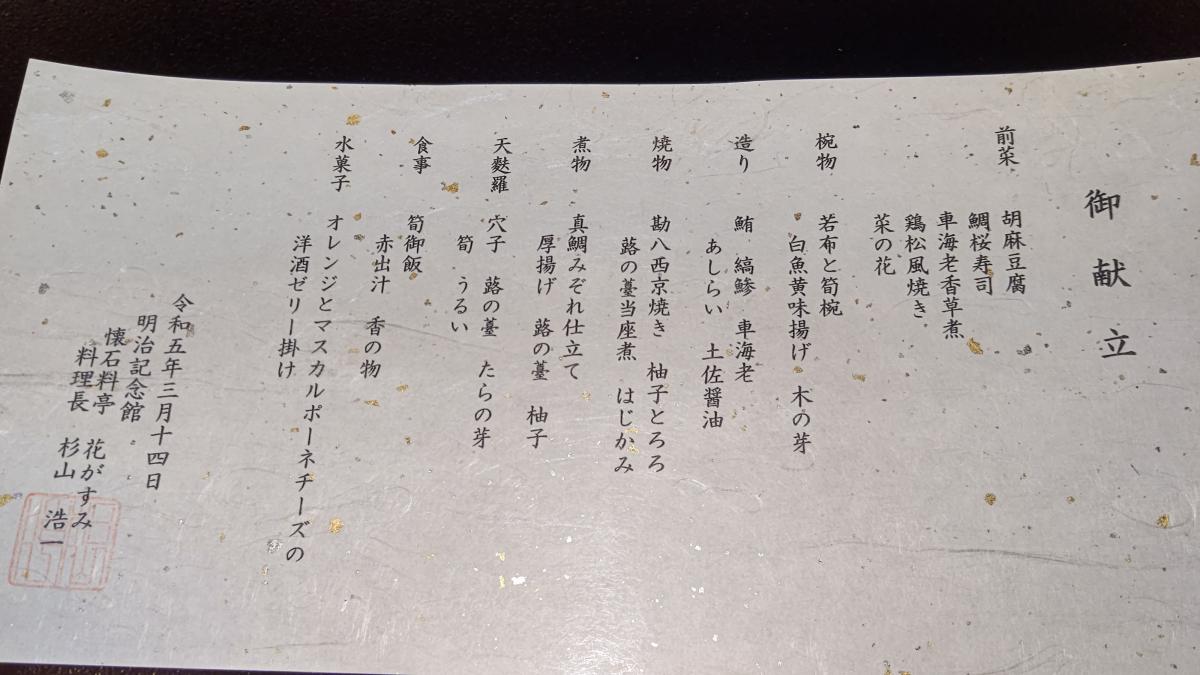 御献立
前菜　胡麻豆腐
鯛桜寿司
車海老香草煮
鶏松風焼き
菜の花
椀物　若布と筍椀
白魚黄味揚げ　木の芽
造り　鮪　縞鯵　車海老
あしらい　土佐醤油
焼物　勘八西京焼き　柚子とろろ
蕗の薹当座煮　はじかみ
煮物　真鯛みぞれ仕立て
厚揚げ　蕗の薹　柚子
天麩羅　穴子　蕗の薹　たらの芽
筍　うるい
食事　筍御飯
赤出汁　香の物
水菓子　オレンジとマスカルポーネチーズの
洋酒ゼリー掛け
令和五年三月十四日
明治記念館
懐石料亭　花がすみ
料理長　杉山　浩一